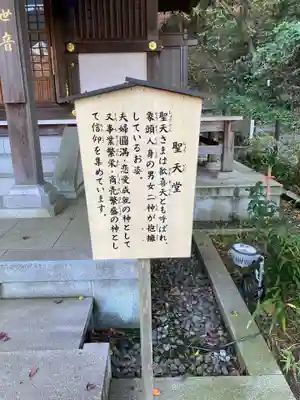 聖天堂
聖天さまは歓喜天とも呼ばれ
象頭人身の男女二神が抱擁
しているお姿。
夫婦円満・恋愛成就の神として
又事業繁栄・商売繁盛の神とし
て信仰を集めています。
世音